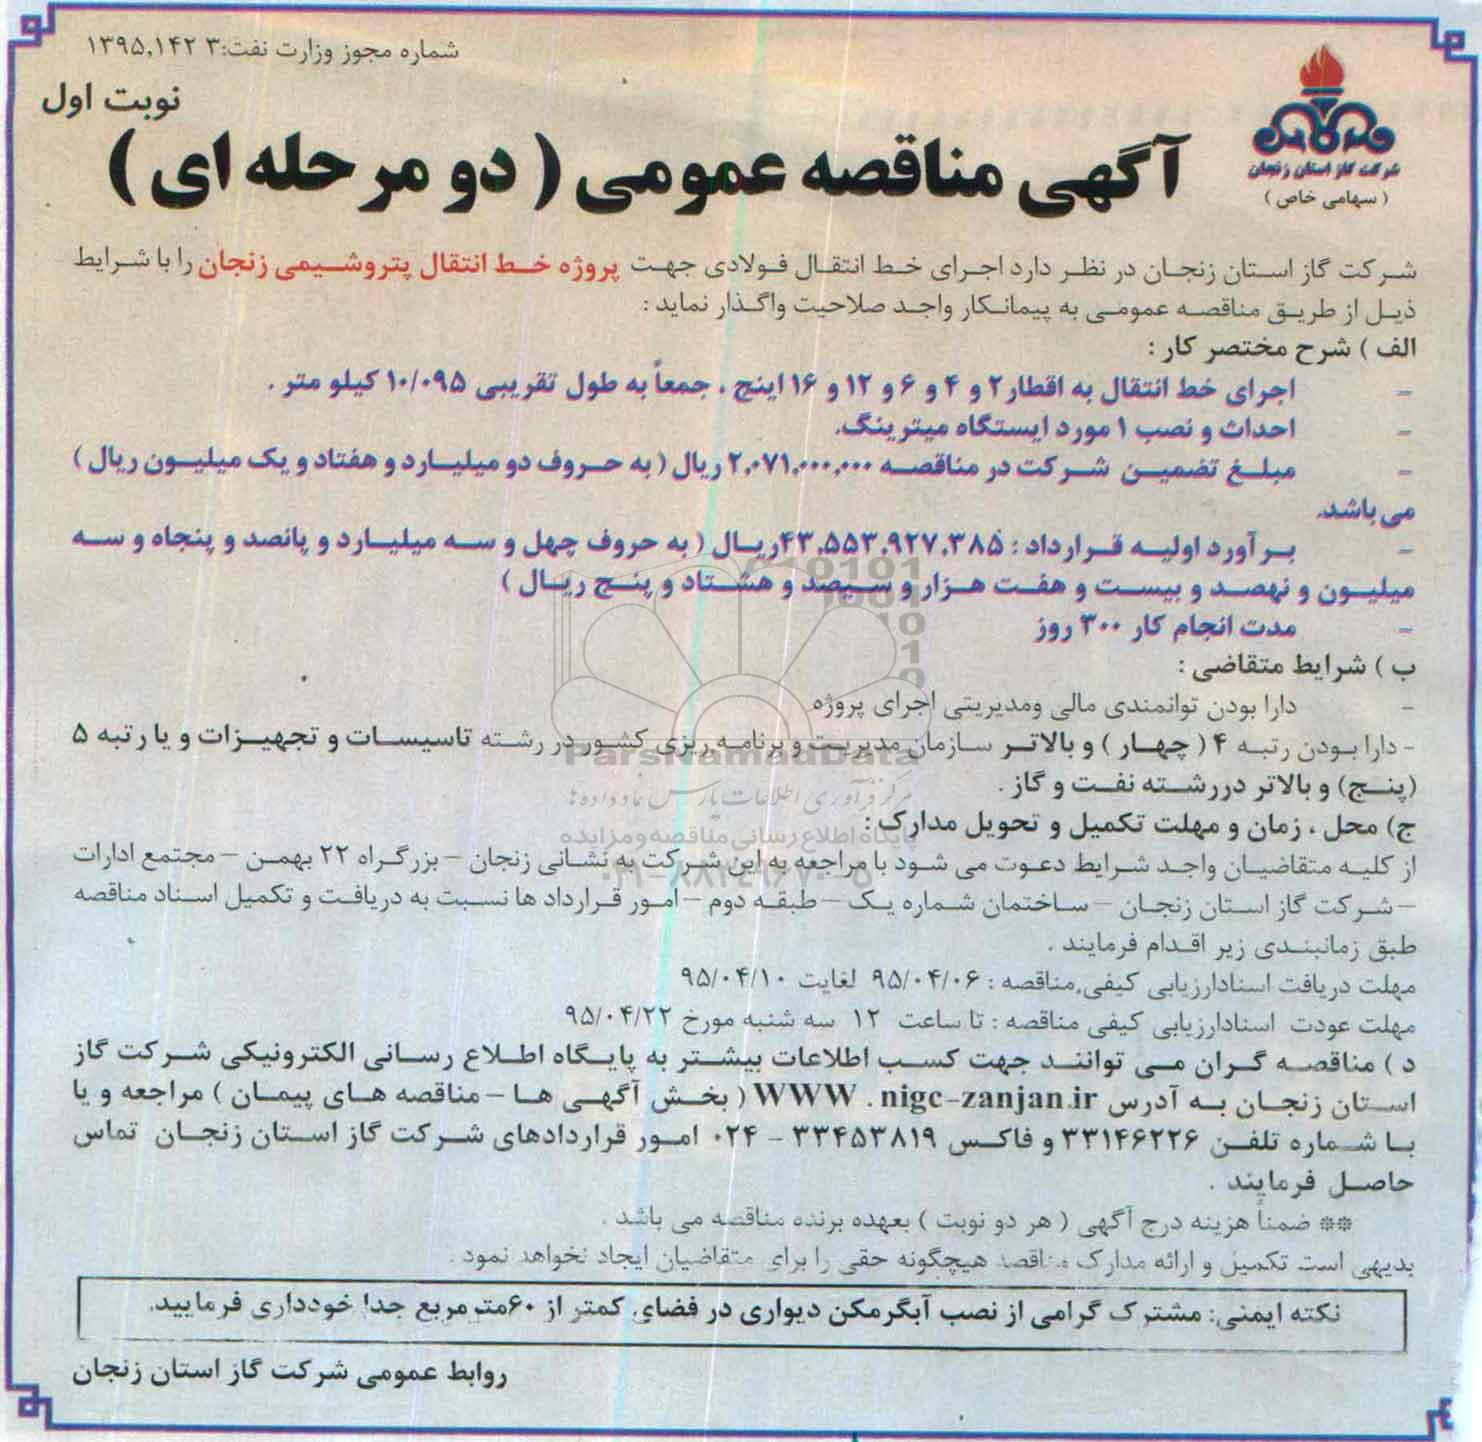 شماره مجوز وزارت نفت:۱۳۹۵,۱۴۲۳
نوبت اول
شرکت گاز استان زنجان
( سهامی خاص )
آگهی مناقصه عمومی ( دو مرحله ای )
شرکت گاز استان زنجان در نظر دارد اجرای خط انتقال فولادی جهت پروژه خط انتقال پتروشیمی زنجان را با شرایط
ذیل از طریق مناقصه عمومی به پیمانکار واجد صلاحیت واگذار نماید :
الف ) شرح مختصر کار :
- اجرای خط انتقال به اقطار ۲ و ۴ و ۶ و ۱۲ و ۱۶ اینچ ، جمعاً به طول تقریبی ۱۰/۰۹۵ کیلو متر .
- احداث و نصب ۱ مورد ایستگاه میترینگ.
- مبلغ تضمین شرکت در مناقصه ۲,۰۷۱,۰۰۰,۰۰۰ ریال ( به حروف دو میلیارد و هفتاد و یک میلیون ریال )
می باشد.
- بر آورد اولیه قرارداد : ۴۳,۵۵۳,۹۲۷,۳۸۵ریال ( به حروف چهل و سه میلیارد و پانصد و پنجاه و سه
میلیون و نهصد و بیست و هفت هزار و سیصد و هشتاد و پنج ریال )
- مدت انجام کار ۳۰۰ روز
ب ) شرایط متقاضی :
- دارا بودن توانمندی مالی ومدیریتی اجرای پروژه
- دارا بودن رتبه ۴ ( چهار ) و بالاتر سازمان مدیریت و برنامه ریزی کشور در رشته تاسیسات و تجهیزات و یا رتبه ۵
(پنج) و بالاتر دررشته نفت و گاز .
ج) محل ، زمان و مهلت تکمیل و تحویل مدارک :
از کلیه متقاضیان واجد شرایط دعوت می شود با مراجعه به این شرکت به نشانی زنجان – بزرگراه ۲۲ بهمن – مجتمع ادارات
– شرکت گاز استان زنجان – ساختمان شماره یک – طبقه دوم – امور قرارداد ها نسبت به دریافت و تکمیل اسناد مناقصه
طبق زمانبندی زیر اقدام فرمایند .
مهلت دریافت اسنادارزیابی کیفی مناقصه : ۹۵/۰۴/۰۶ لغایت ۹۵/۰۴/۱۰
مهلت عودت اسنادارزیابی کیفی مناقصه : تا ساعت ۱۲ سه شنبه مورخ ۹۵/۰۴/۲۲
د ) مناقصه گران می توانند جهت کسب اطلاعات بیشتر به پایگاه اطلاع رسانی الکترونیکی شرکت گاز
استان زنجان به آدرس WWW . nigc-zanjan.ir ( بخش آگهی ها – مناقصه های پیمان ) مراجعه و یا
با شماره تلفن ۳۳۱۴۶۲۲۶ و فاکس ۳۳۴۵۳۸۱۹ - ۰۲۴ امور قراردادهای شرکت گاز استان زنجان تماس
حاصل فرمایند .
** ضمناً هزینه درج آگهی ( هر دو نوبت ) بعهده برنده مناقصه می باشد .
بدیهی است تکمیل و ارائه مدارک مناقصه هیچگونه حقی را برای متقاضیان ایجاد نخواهد نمود .
نکته ایمنی: مشترک گرامی از نصب آبگرمکن دیواری در فضای کمتر از ۶۰مترمربع جدا خودداری فرمایید.
روابط عمومی شرکت گاز استان زنجان
ParsNamadData
مرکز فرآوری اطلاعات پارس نماد داده ها
پایگاه اطلاع رسانی مناقصه و مزایده
۰۲۱-۸۸۳۴۹۶۷۰-۵